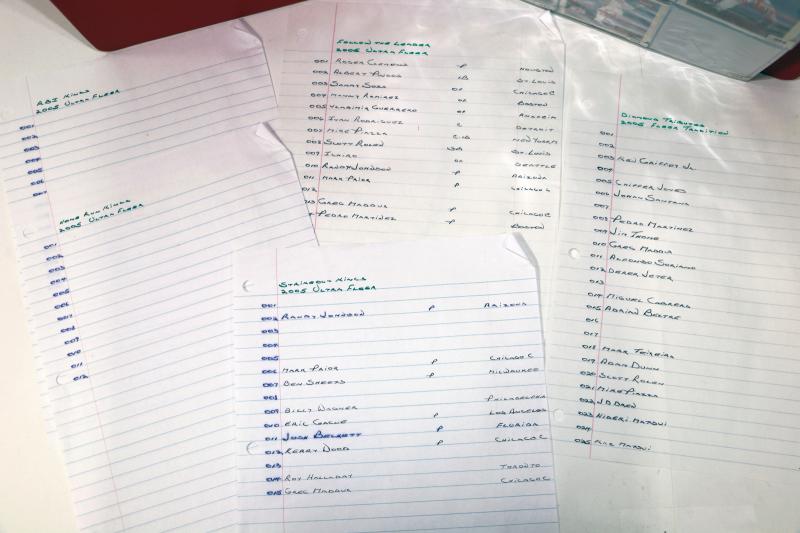 RBI Kings
2005 Ultra Fleer
001
002
003
004
005
006
007
Home Run Kings
2005 Ultra Fleer
001
002
003
004
005
006
007
008
009
010
011
012
Follow the Leader
2005 Ultra Fleer
001 Roger Clemens P Houston
002 Albert Pujols 1B St. Louis
003 Sammy Sosa OF Chicago C
004 Manny Ramirez OF Boston
005 Vladimir Guerrero OF Anaheim
006 Ivan Rodriguez C Detroit
007 Mike Piazza C-1B New York M
008 Scott Rolen 3B St. Louis
009 Ichiro OF Seattle
010 Randy Johnson P Arizona
011 Mark Prior P Chicago C
012
013 Greg Maddux P Chicago C
Pedro Martinez P Boston
Strikeout Kings
2005 Ultra Fleer
001 Arizona
002 Randy Johnson P
003
004
005 Chicago C
006 Mark Prior P Milwaukee
007 Ben Sheets P
008 Philadelphia
009 Billy Wagner Los Angeles
010 Eric Gagne P Florida
011 Josh Beckett P Chicago C
012 Kerry Wood
013 Toronto
014 Roy Halladay Chicago C
015 Greg Maddux
Diamond Tributes
2005 Fleer Tradition
001
002
003 Ken Griffey Jr.
004
005 Chipper Jones
006 Johan Santana
007
008 Pedro Martinez
009 Jim Thome
010 Greg Maddux
011 Alfonso Soriano
012 Derek Jeter
013
014 Miguel Cabrera
015 Adrian Beltre
016
017
018 Mark Teixeira
019 Adam Dunn
020 Scott Rolen
021 Mike Piazza
022 JD Drew
023 Hideki Matsui
024
025 Kaz Matsui